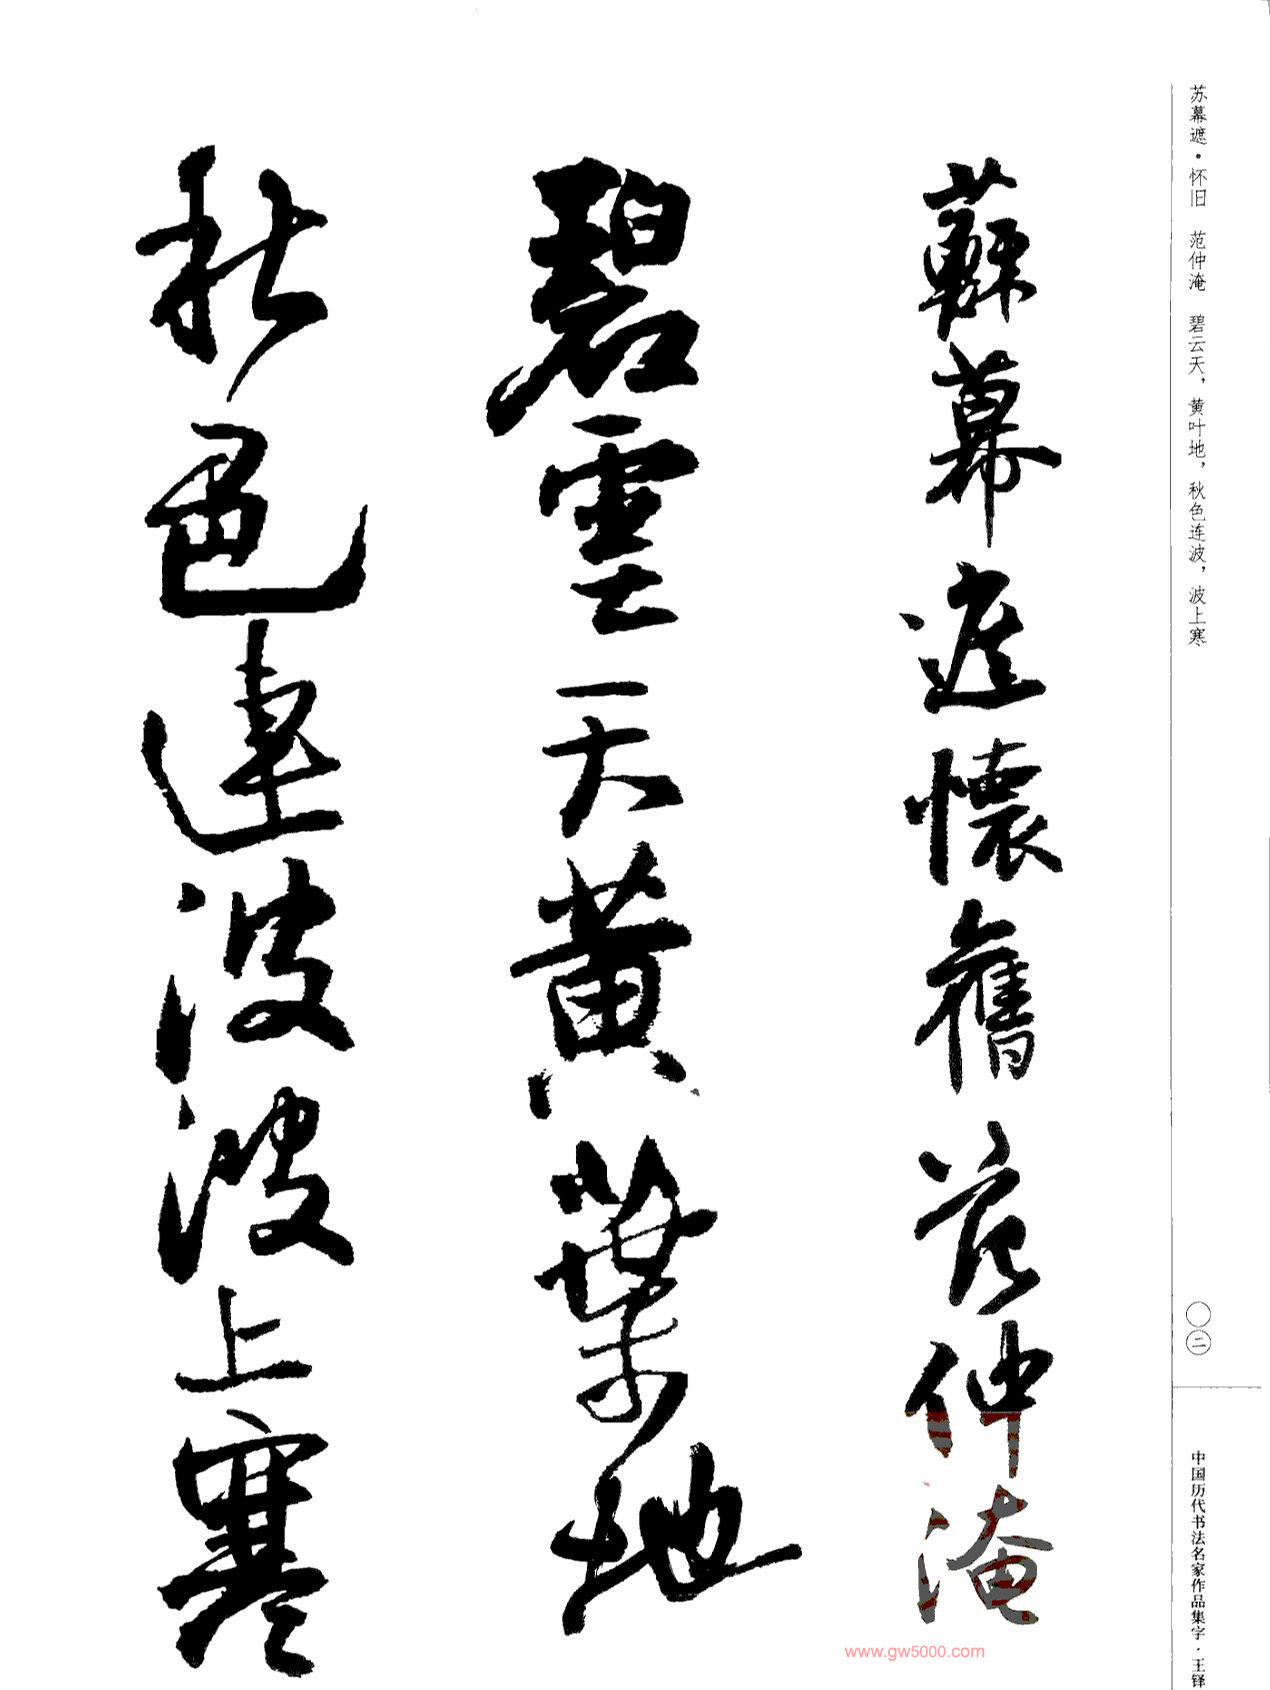 苏幕遮·怀旧 范仲淹 碧云天，黄叶地，秋色连波，波上寒
蘇幕遮懷舊范仲淹
碧雲天黃葉地
秋色連波波上寒
〇二
中国历代书法名家作品集字·王铎
www.gw5000.com